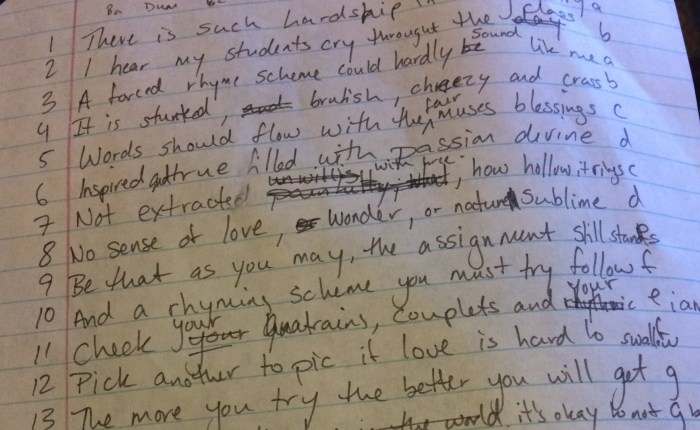 Ba Dum
1 There is such hardship a
2 I hear my students cry throught the class b
3 A forced rhyme scheme could hardly sound like me a
4 It is stunted, brutish, cheezy and crass b
5 Words should flow with the fair muses blessings c
6 Inspired and true filled with passion divine d
7 Not extracted with , how hollow it rings c
8 No sense of love, or wonder, or natural sublime d
9 Be that as you may, the assignment still stands
10 And a rhyming scheme you must try follow f
11 Check your quatrains, couplets and your e
12 Pick another topic if love is hard to swallow
13 The more you try the better you will get g
the world it's okay to not